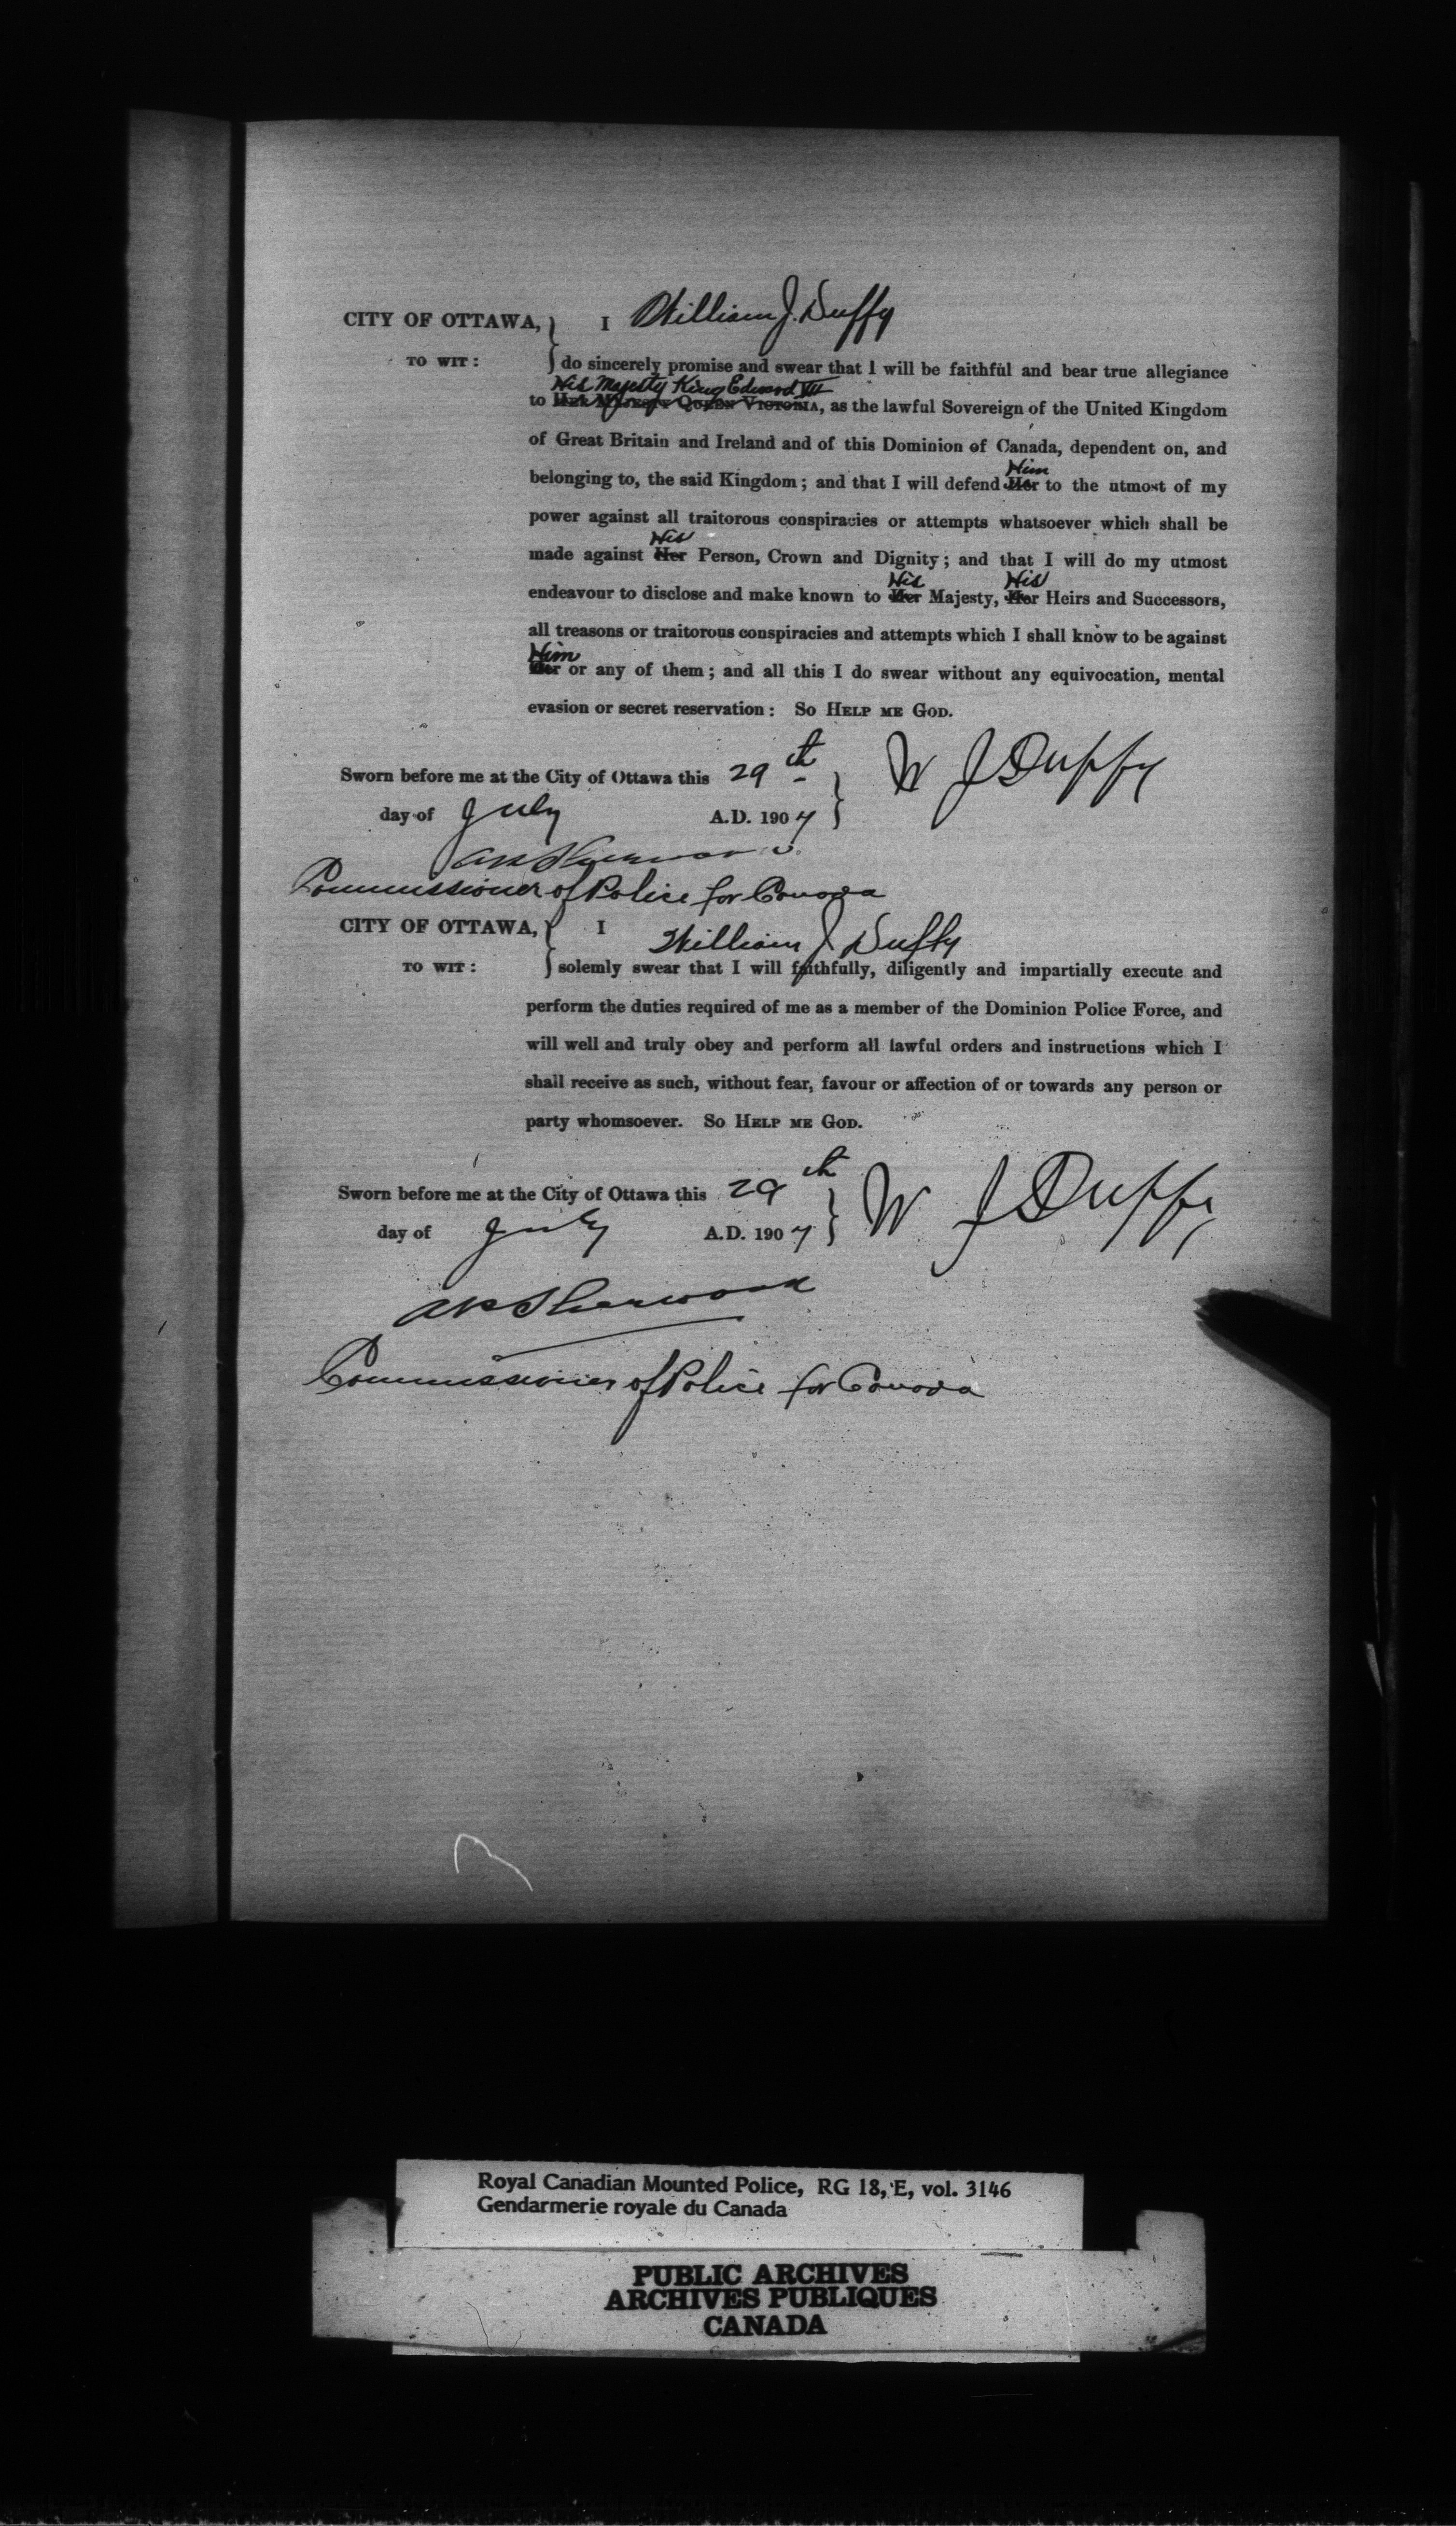 CITY OF OTTAWA, I William J. Duffy
TO WIT: do sincerely promise and swear that I will be faithful and bear true allegiance
His Majesty King Edward VII
to HER MAJESTY QUEEN VICTORIA, as the lawful Sovereign of the United Kingdom
of Great Britain and Ireland and of this Dominion of Canada, dependent on, and
Him
belonging to, the said Kingdom; and that I will defend Her to the utmost of my
power against all traitorous conspiracies or attempts whatsoever which shall be
His
made against Her Person, Crown and Dignity; and that I will do my utmost
His His
endeavour to disclose and make known to Her Majesty, Her Heirs and Successors,
all treasons or traitorous conspiracies and attempts which I shall know to be against
Him
Her or any of them; and all this I do swear without any equivocation, mental
evasion or secret reservation: SO HELP ME GOD.
Sworn before me at the City of Ottawa this 29th W J Duffy
day of July A.D. 1907
AP Sherwood
Commissioner of Police for Canada
CITY OF OTTAWA, I William J Duffy
TO WIT: solemly swear that I will faithfully, diligently and impartially execute and
perform the duties required of me as a member of the Dominion Police Force, and
will well and truly obey and perform all lawful orders and instructions which I
shall receive as such, without fear, favour or affection of or towards any person or
party whomsoever. SO HELP ME GOD.
Sworn before me at the City of Ottawa this 29th W J Duffy
day of July A.D. 1907
AP Sherwood
Commissioner of Police for Canada
Royal Canadian Mounted Police, RG 18, E, vol. 3146
Gendarmerie royale du Canada
PUBLIC ARCHIVES
ARCHIVES PUBLIQUES
CANADA